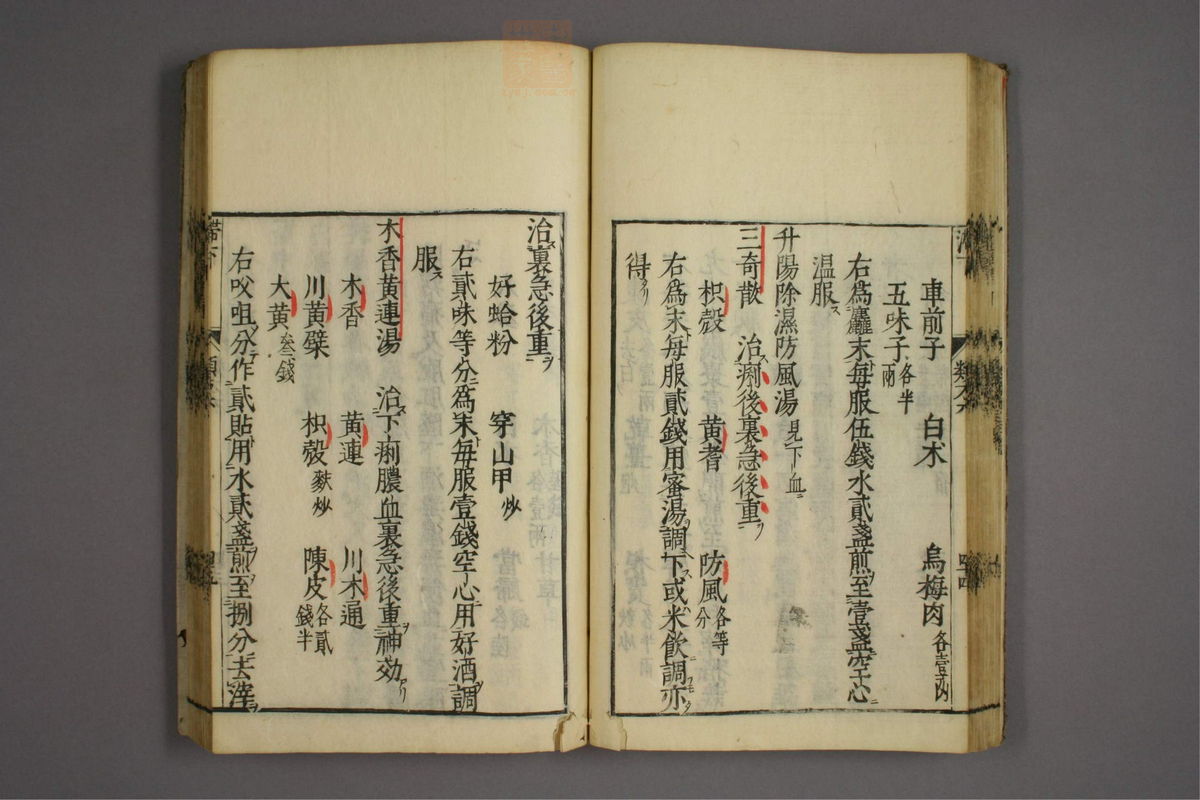 車前子　白朮　烏梅肉各壹兩
五味子各半兩
右為麤末每服伍錢水貳盞煎至壹盞空心
温服ス
升陽除濕防風湯見下血ニ
三奇散　治ス痢後裏急後重ヲ
枳殼　黄耆　防風各等分
右為末ト每服貳錢用蜜湯調下ス或米飲調亦
得タリ
治ス裏急後重ヲ
好蛤粉　穿山甲炒
右貳味等分為末每服壹錢空心用好酒調
服ス
木香黄連湯　治ス下痢膿血裏急後重ヲ神効アリ
木香　黄連　川木通
川黄檗　枳殼麩炒　陳皮各貳錢半
大黄叁錢
右㕮咀分作貳貼用水貳盞煎至捌分去滓ヲ